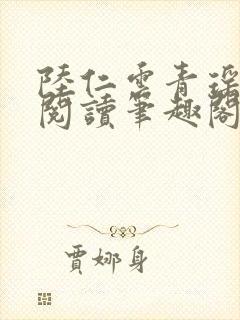 陸仁雲青瑶
閱讀筆趣閣
賈娜身